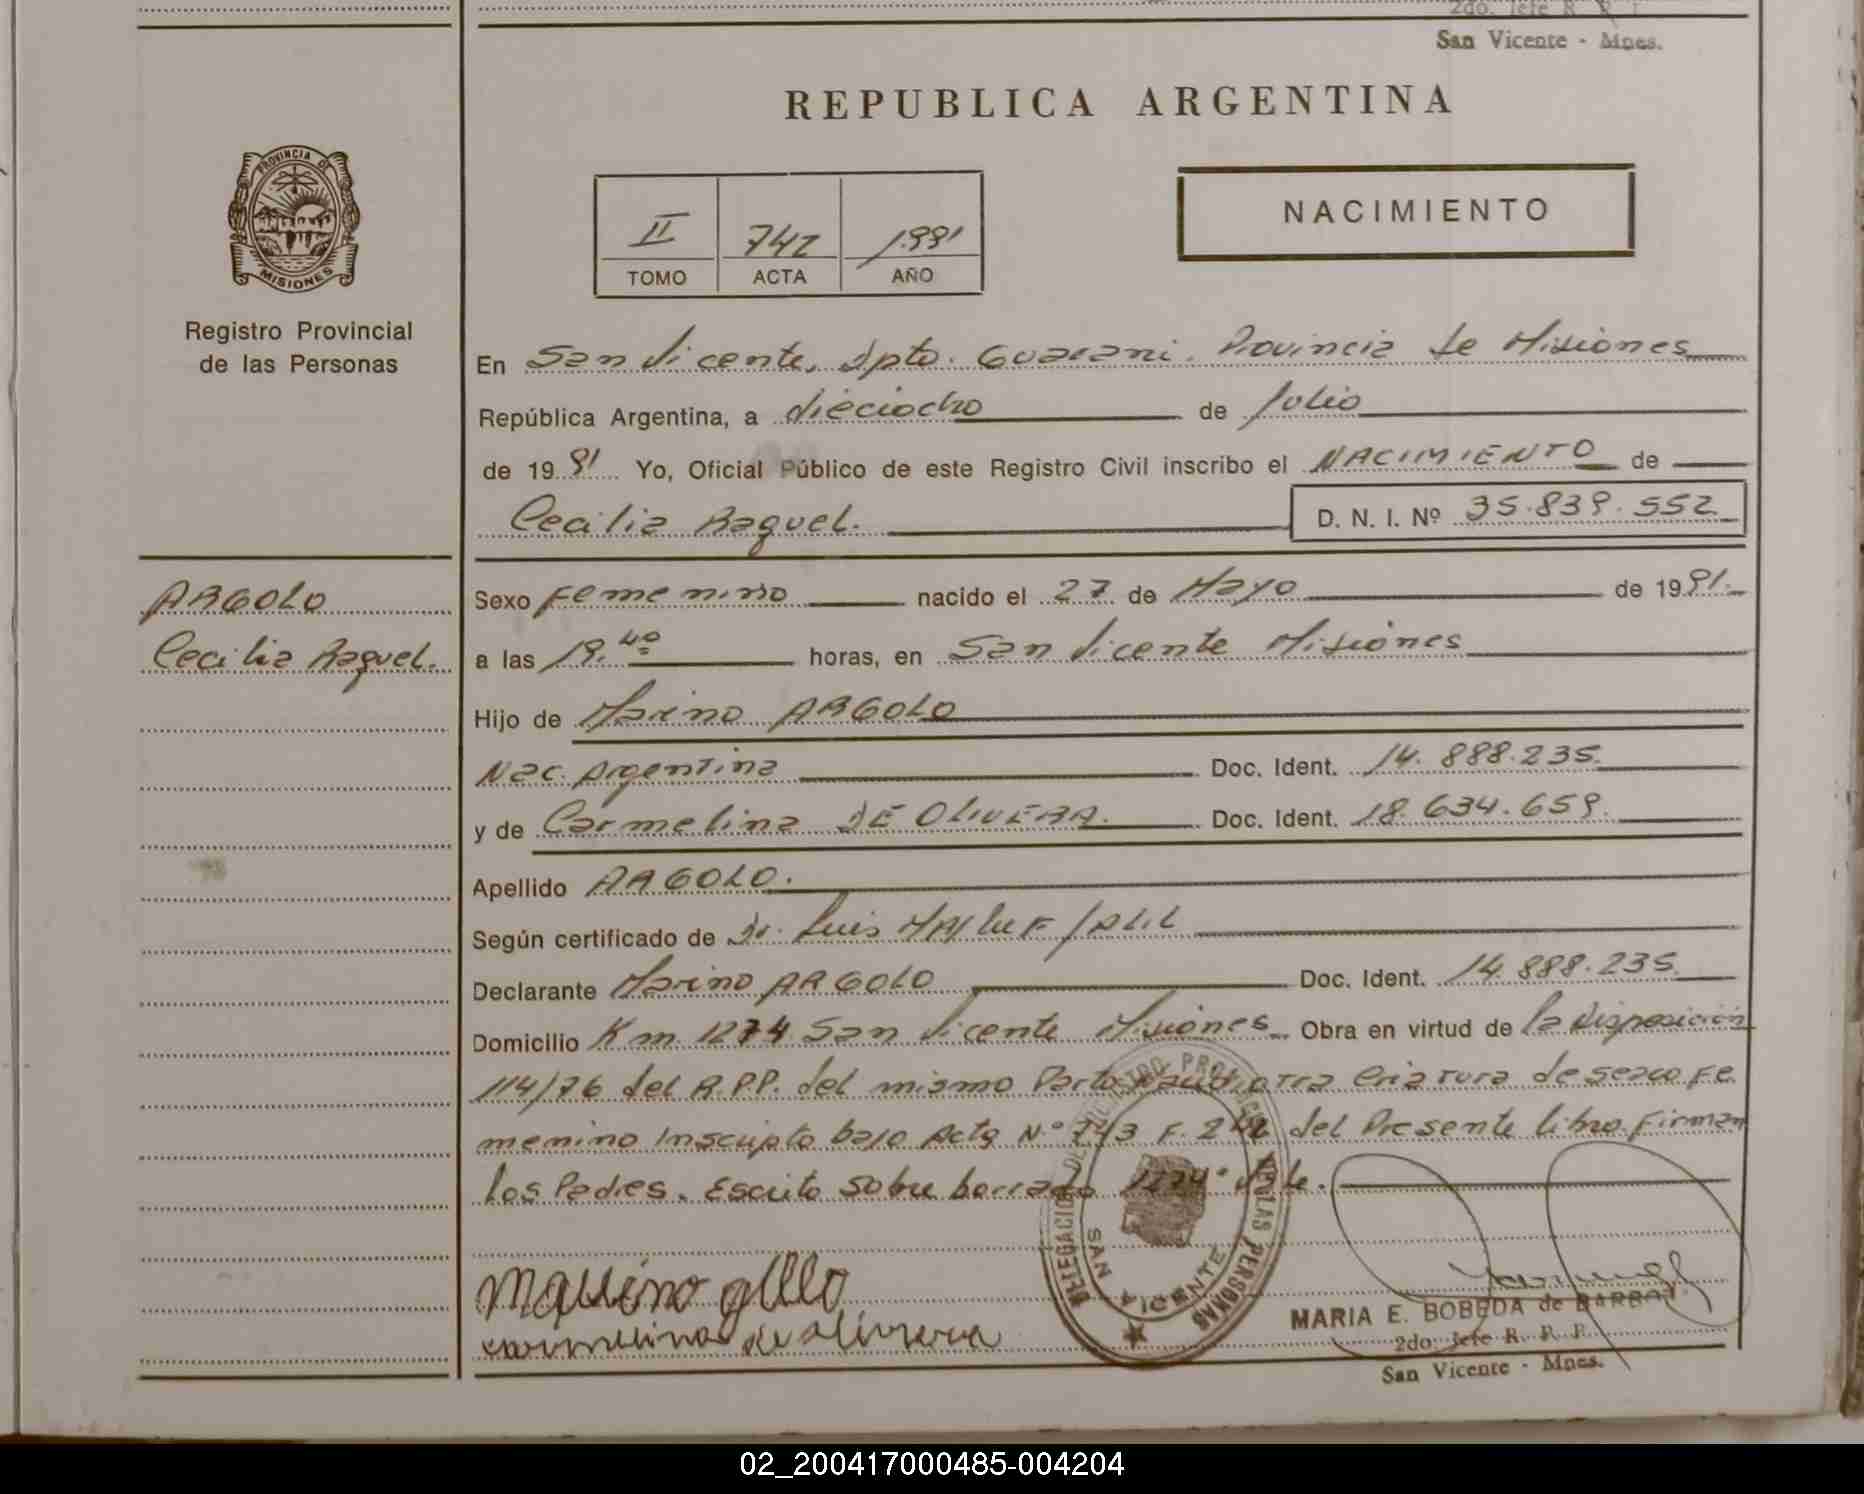 2do. Jefe R. R. P.
San Vicente - Mnes.
REPUBLICA ARGENTINA
PROVINCIA DE
MISIONES
Registro Provincial
de las Personas
II 742 1.991
TOMO ACTA AÑO
NACIMIENTO
En San Vicente, Dpto. Guarani. Provincia de Misiones
República Argentina, a dieciocho de Julio
de 19 91 Yo, Oficial Público de este Registro Civil inscribo el NACIMIENTO de
Cecilia Raquel. D. N. I. Nº 35.839.552
ARGOLO
Cecilia Raquel.
Sexo Femenino nacido el 27 de Mayo de 1991.
a las 19.40 horas, en San Vicente Misiones
Hijo de Marino ARGOLO
Nac. Argentina Doc. Ident. 14.888.235.
y de Carmelina DE OLIVERA. Doc. Ident. 18.634.659.
Apellido ARGOLO.
Según certificado de Dr. Luis
Declarante Marino ARGOLO Doc. Ident. 14.888.235
Domicilio Km. 1274 San Vicente Misiones Obra en virtud de la disposición
114/76 del R.P.P. del mismo Parto otra Criatura de sexo Fe
menino Inscripto bajo Acta N.º 743 F. del Presente libro Firman
los Padres. Escrito sobre borrado Vale.
DELEGACION
SAN VICENTE
LAS PERSONAS
carmelina de olivera
MARIA E. BOBEDA de BARBOZA
2do. Jefe R. R. P.
San Vicente - Mnes.
02_200417000485-004204